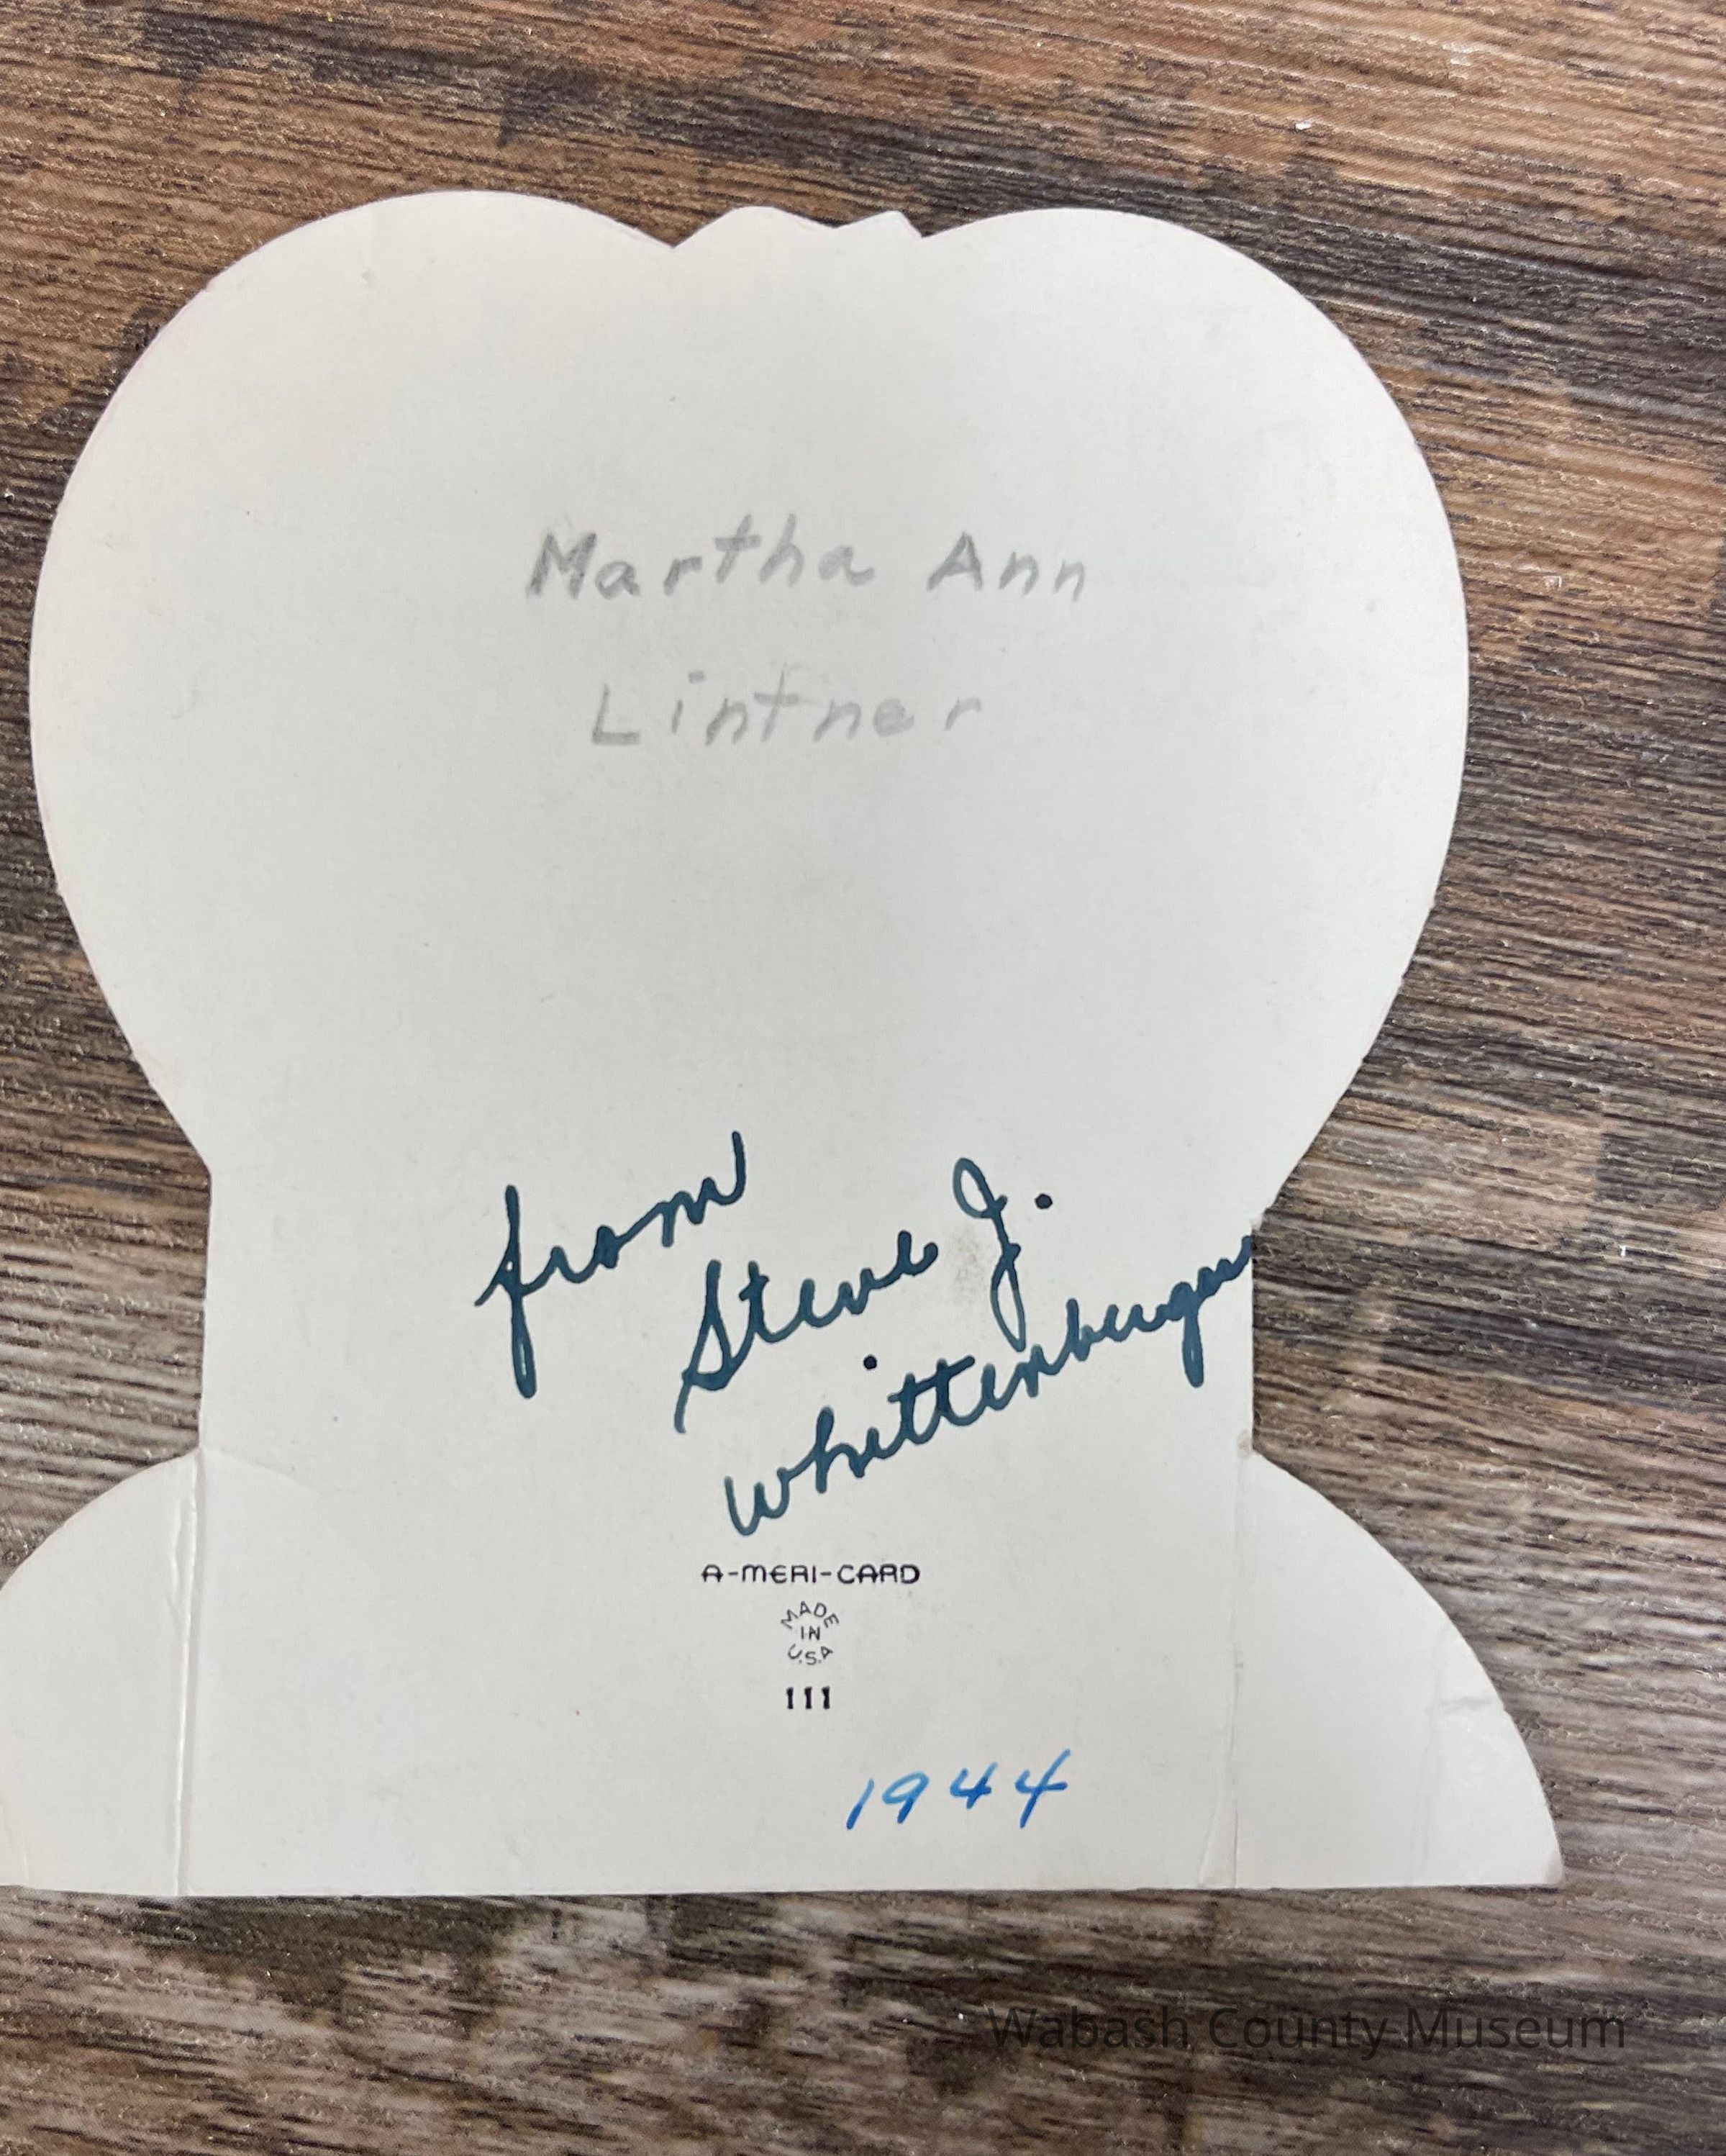 Martha Ann
Lintner
from
Steve J.
Whittenberger
A-MERI-CARD
MADE
IN
U.S.A
111
1944
Wabash County Museum